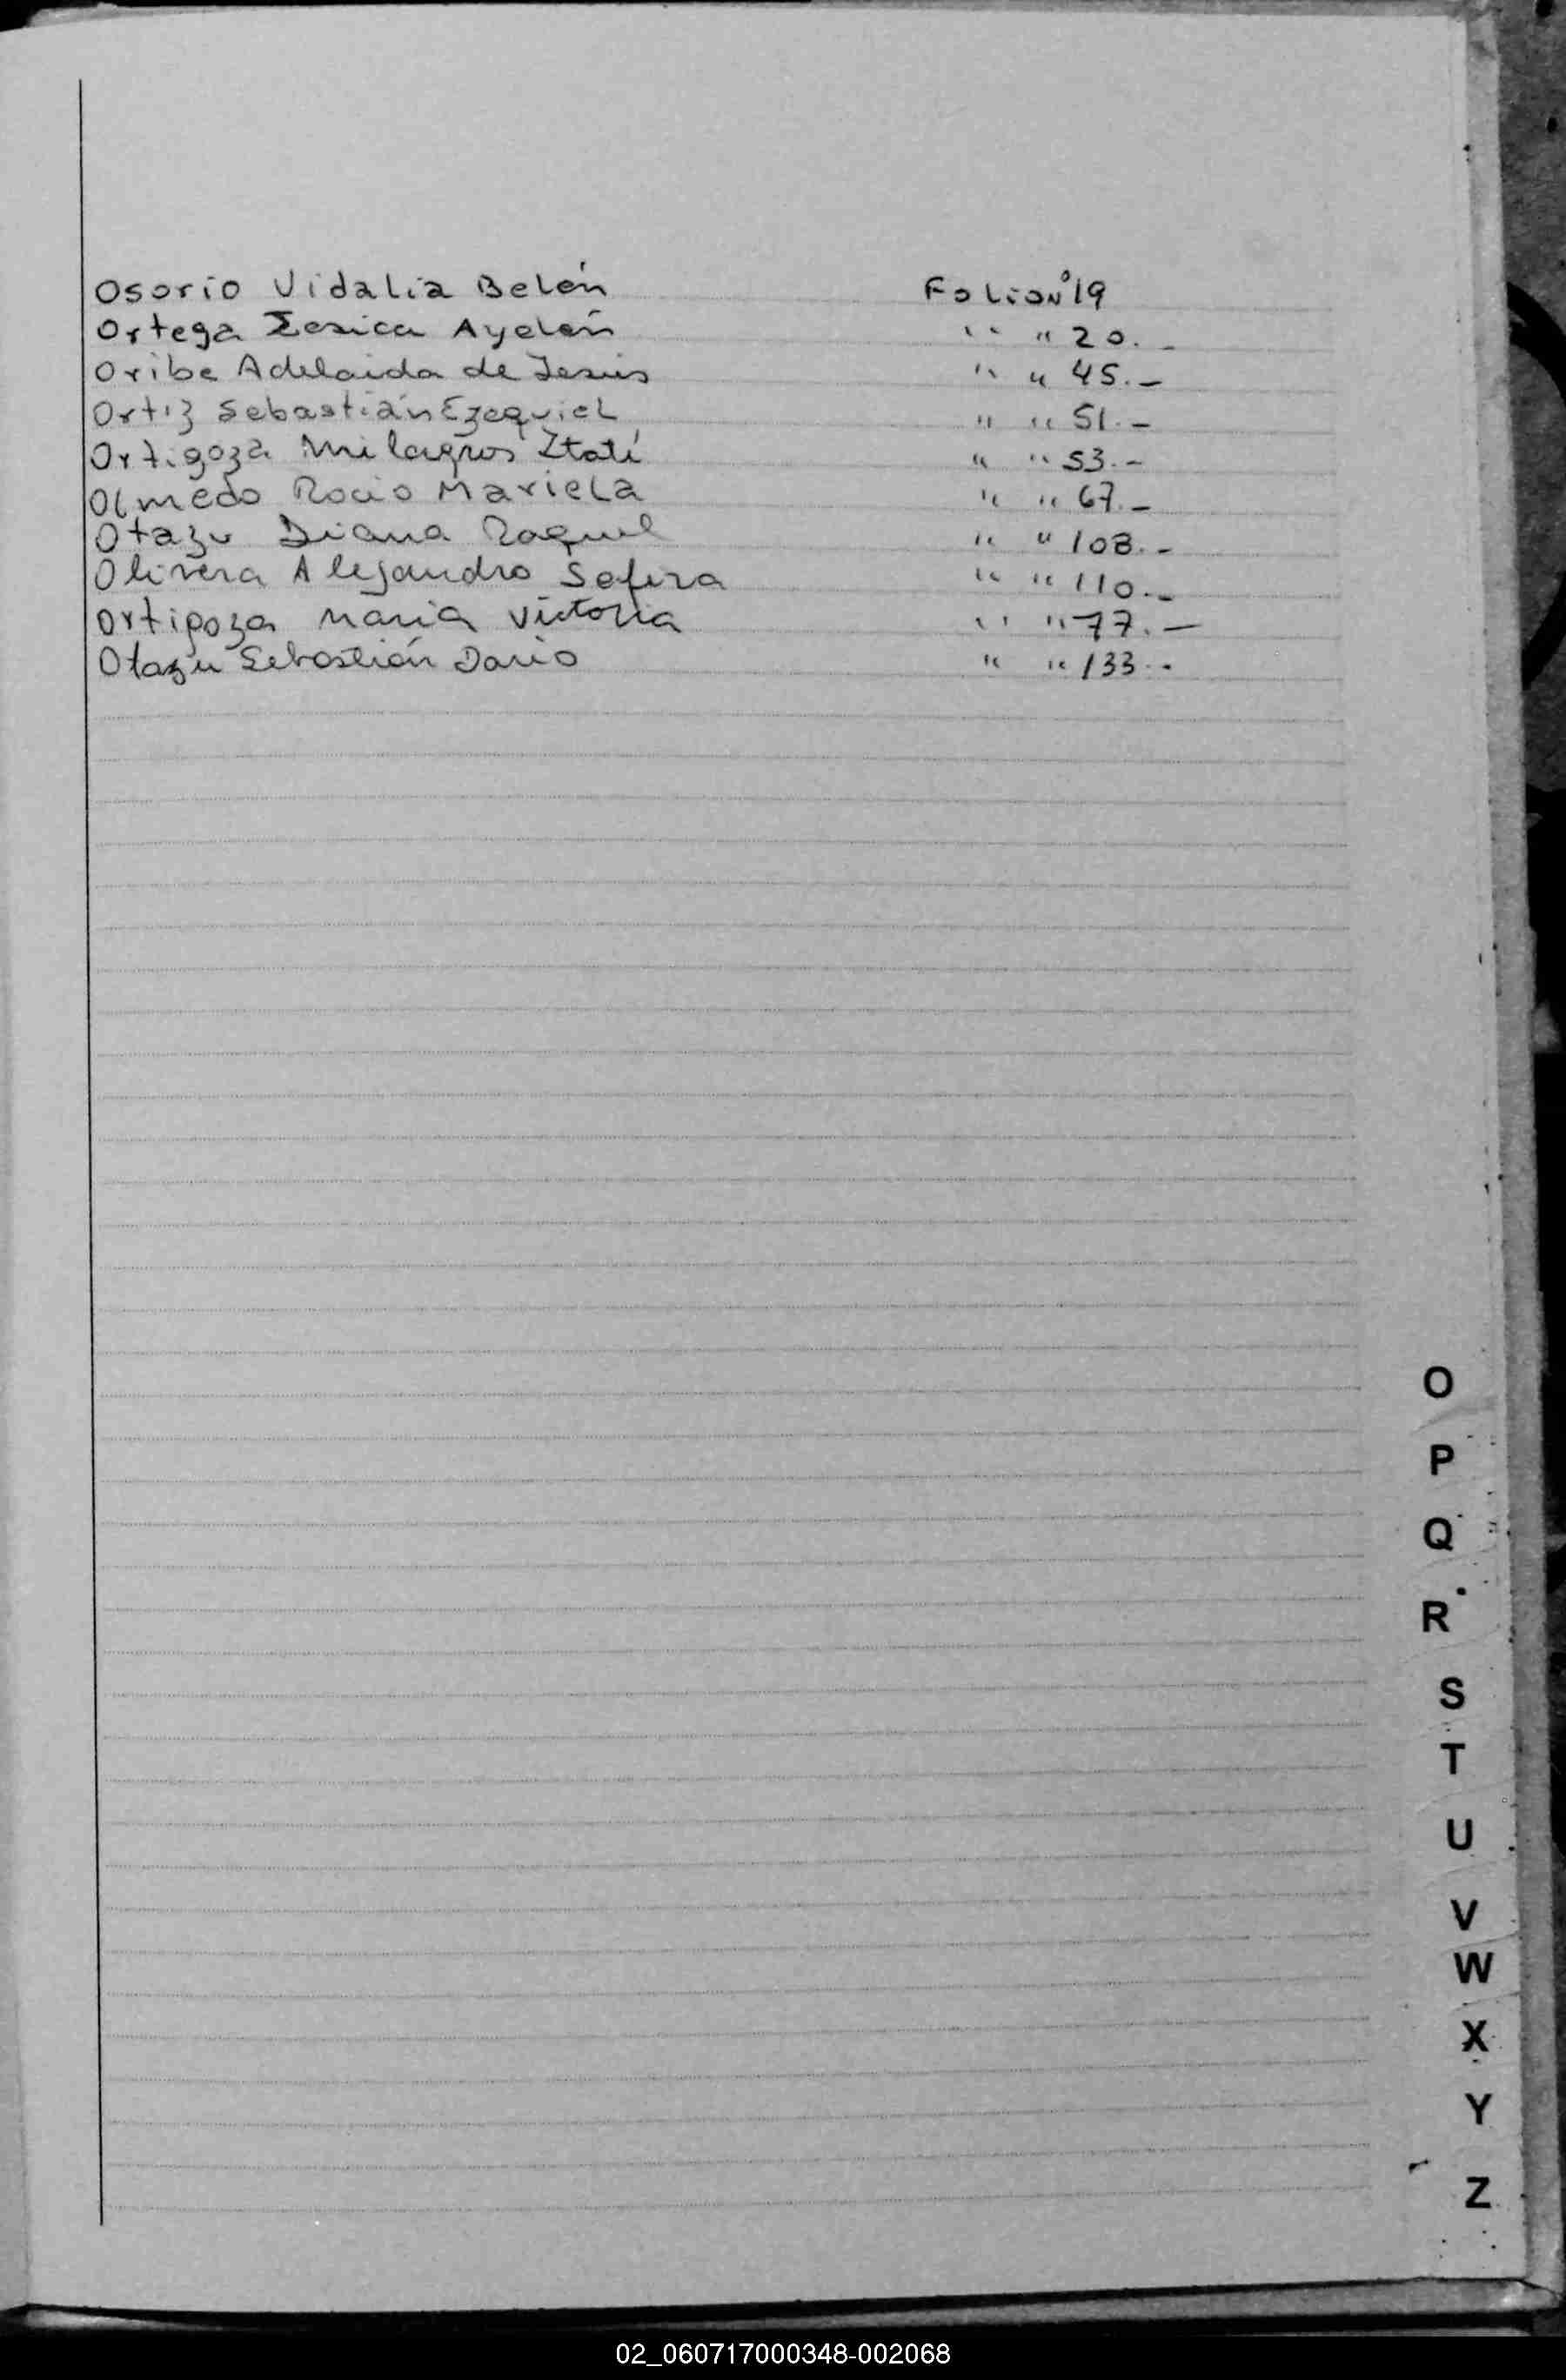 Osorio Vidalia Belén Folio Nº 19
Ortega Iesica Ayelén " " 20.-
Oribe Adelaida de Jesús " " 45.-
Ortiz Sebastián Ezequiel " " 51.-
Ortigoza Milagros Itatí " " 53.-
Olmedo Rocio Mariela " " 67.-
Otazu Diana Raquel " " 108.-
Olivera Alejandro Sefira " " 110.-
Ortigoza Maria Victoria " " 77.-
Otazu Sebastián Dario " " 133.-
O
P
Q
R
S
T
U
V
W
X
Y
Z
02_060717000348-002068